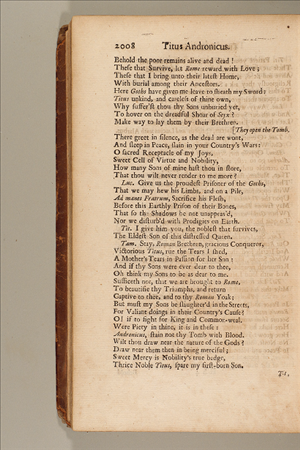 2008 Titus Andronicus.
Behold the poor remains alive and dead!
These that Survive, let Rome reward with Love;
These that I bring unto their latest Home,
With burial among their Ancestors.
Here Goths have given me leave to sheath my Sword:
Titus unkind, and careless of thine own,
Why suffer'st thou thy Sons unburied yet,
To hover on the dreadful Shoar of Styx?
Make way to lay them by their Bretheren.
[They open the Tomb.
There greet in silence, as the dead are wont,
And sleep in Peace, slain in your Country's Wars:
O sacred Receptacle of my Joys,
Sweet Cell of Virtue and Nobility,
How many Sons of mine hast thou in store,
That thou wilt never render to me more?
Luc. Give us the proudest Prisoner of the Goths,
That we may hew his Limbs, and on a Pile,
Ad manes Fratrum, Sacrifice his Flesh,
Before this Earthly Prison of their Bones,
That so the Shadows be not unappeas'd,
Nor we disturb'd with Prodigies on Earth.
Tit. I give him you, the noblest that survives,
The Eldest Son of this distressed Queen.
Tam. Stay, Roman Brethren, gracious Conqueror,
Victorious Titus, rue the Tears I shed,
A Mother's Tears in Passion for her Son:
And if thy Sons were ever dear to thee,
Oh think my Sons to be as dear to me.
Sufficeth not, that we are brought to Rome,
To beautifie thy Triumphs, and return
Captive to thee, and to thy Roman Yoak;
But must my Sons be slaughter'd in the Streets,
For Valiant doings in their Country's Cause?
O! if to fight for King and Common-weal,
Were Piety in thine, it is in these:
Andronicus, stain not thy Tomb with Blood.
Wilt thou draw near the nature of the Gods?
Draw near them then in being merciful;
Sweet Mercy is Nobility's true badge,
Thrice Noble Titus, spare my first-born Son.
Tit.